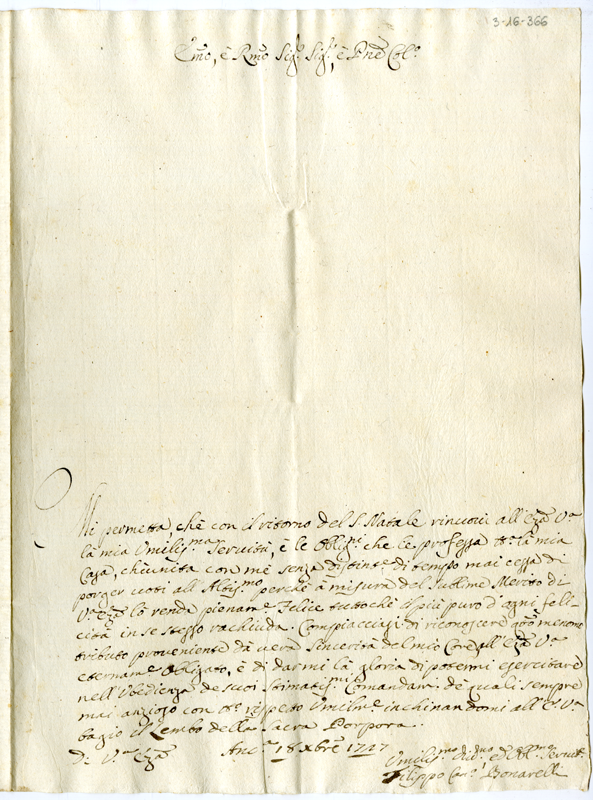 13-16-366
Emo, è Rmo Sig.r Sig.r, è Pne Col.o
Mi permetta che con il ritorno del S. Natale rinuovi all'Eza V.a
la mia Umilis.ma Servitù, è le Oblig.ni che le professa tt.a la mia
Casa, ch'unita con mè senza distint.e di tempo mai cessa di
porger voti all'Altis.mo perchè à misura del sublime Merito di
V.a Eza lo renda pienam.e Felice tutto chè di più puro d'ogni feli-
cità in se stesso rachiuda. Compiacciasi di riconoscere
tributo proveniente dà vera sincerità del mio Core all'Eza V.a
eternam.e obligato, è di darmi la gloria di potermi esercitare
nell'Ubedienza de suoi stimatis.mi Comandam. de quali sempre
mai anzioso con tt.o rispetto Umilm.e inchinandomi all'E. V.a
bagio il Lembo della Sacra Porpora.
Di V.a Eza Anc.a 18 Xbre 1747
Umilis.mo Div.o ed Obl.mo Servit.
Filippo Con.e Bonarelli